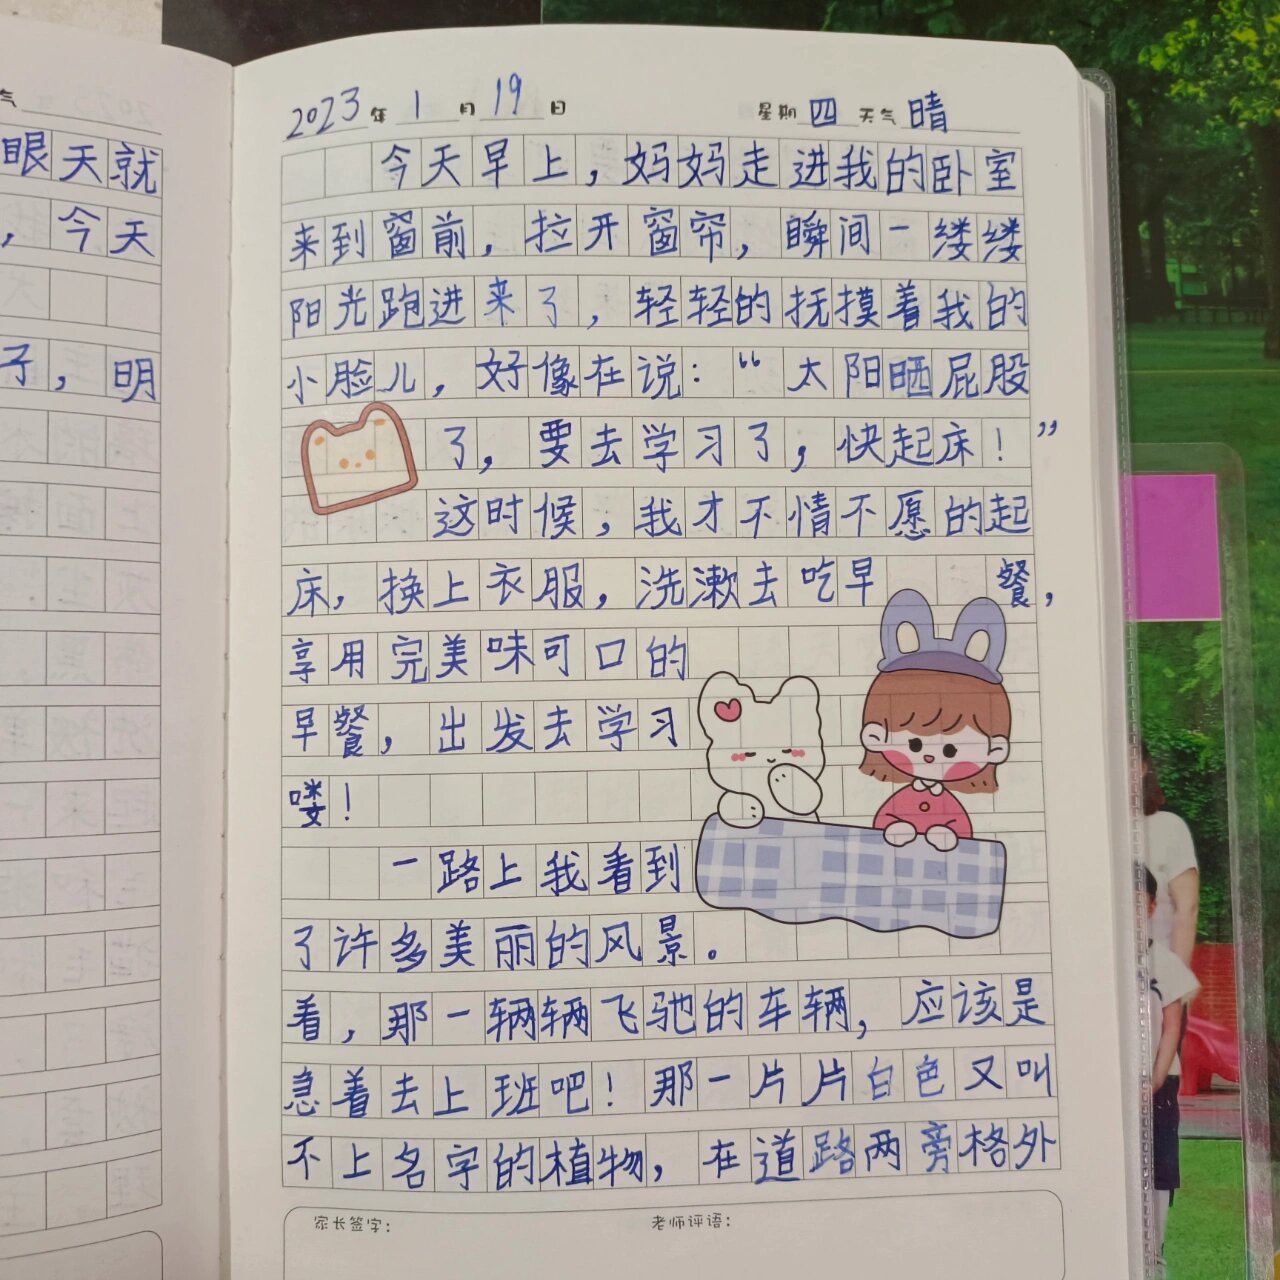 气
眼天就
，今天
子，明
2023年1月19日 星期四 天气晴
今天早上，妈妈走进我的卧室
来到窗前，拉开窗帘，瞬间一缕缕
阳光跑进来了，轻轻的抚摸着我的
小脸儿，好像在说：“太阳晒屁股
了，要去学习了，快起床！”
这时候，我才不情不愿的起
床，换上衣服，洗漱去吃早餐，
享用完美味可口的
早餐，出发去学习
喽！
一路上我看到
了许多美丽的风景。
看，那一辆辆飞驰的车辆，应该是
急着去上班吧！那一片片白色又叫
不上名字的植物，在道路两旁格外
家长签字： 老师评语：